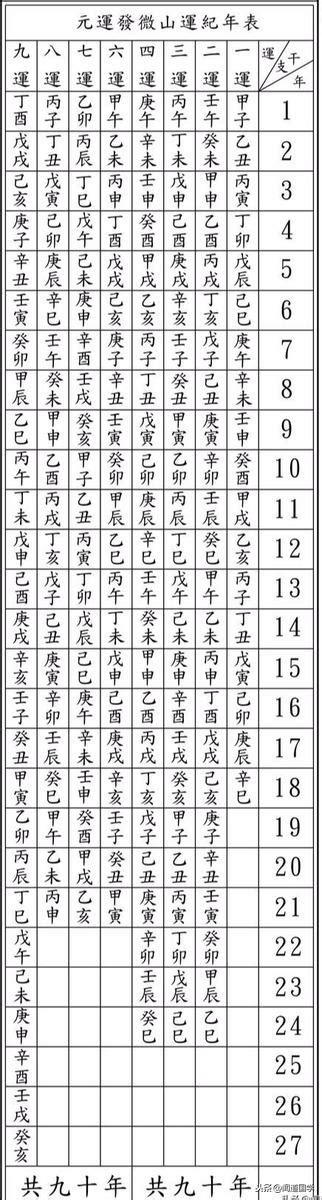 元運發微山運紀年表
九運 八運 七運 六運 四運 三運 二運 一運 運 干支 年
丁酉 丙子 乙卯 甲午 庚午 丙午 壬午 甲子 1
戊戌 丁丑 丙辰 乙未 辛未 丁未 癸未 乙丑 2
己亥 戊寅 丁巳 丙申 壬申 戊申 甲申 丙寅 3
庚子 己卯 戊午 丁酉 癸酉 己酉 乙酉 丁卯 4
辛丑 庚辰 己未 戊戌 甲戌 庚戌 丙戌 戊辰 5
壬寅 辛巳 庚申 己亥 乙亥 辛亥 丁亥 己巳 6
癸卯 壬午 辛酉 庚子 丙子 壬子 戊子 庚午 7
甲辰 癸未 壬戌 辛丑 丁丑 癸丑 己丑 辛未 8
乙巳 甲申 癸亥 壬寅 戊寅 甲寅 庚寅 壬申 9
丙午 乙酉 甲子 癸卯 己卯 乙卯 辛卯 癸酉 10
丁未 丙戌 乙丑 甲辰 庚辰 丙辰 壬辰 甲戌 11
戊申 丁亥 丙寅 乙巳 辛巳 丁巳 癸巳 乙亥 12
己酉 戊子 丁卯 丙午 壬午 戊午 甲午 丙子 13
庚戌 己丑 戊辰 丁未 癸未 己未 乙未 丁丑 14
辛亥 庚寅 己巳 戊申 甲申 庚申 丙申 戊寅 15
壬子 辛卯 庚午 己酉 乙酉 辛酉 丁酉 己卯 16
癸丑 壬辰 辛未 庚戌 丙戌 壬戌 戊戌 庚辰 17
甲寅 癸巳 壬申 辛亥 丁亥 癸亥 己亥 辛巳 18
乙卯 甲午 癸酉 壬子 戊子 甲子 庚子 19
丙辰 乙未 甲戌 癸丑 己丑 乙丑 辛丑 20
丁巳 丙申 乙亥 甲寅 庚寅 丙寅 壬寅 21
戊午 辛卯 丁卯 癸卯 22
己未 壬辰 戊辰 甲辰 23
庚申 癸巳 己巳 乙巳 24
辛酉 25
壬戌 26
癸亥 27
共九十年 共九十年
头条 @闻道国学